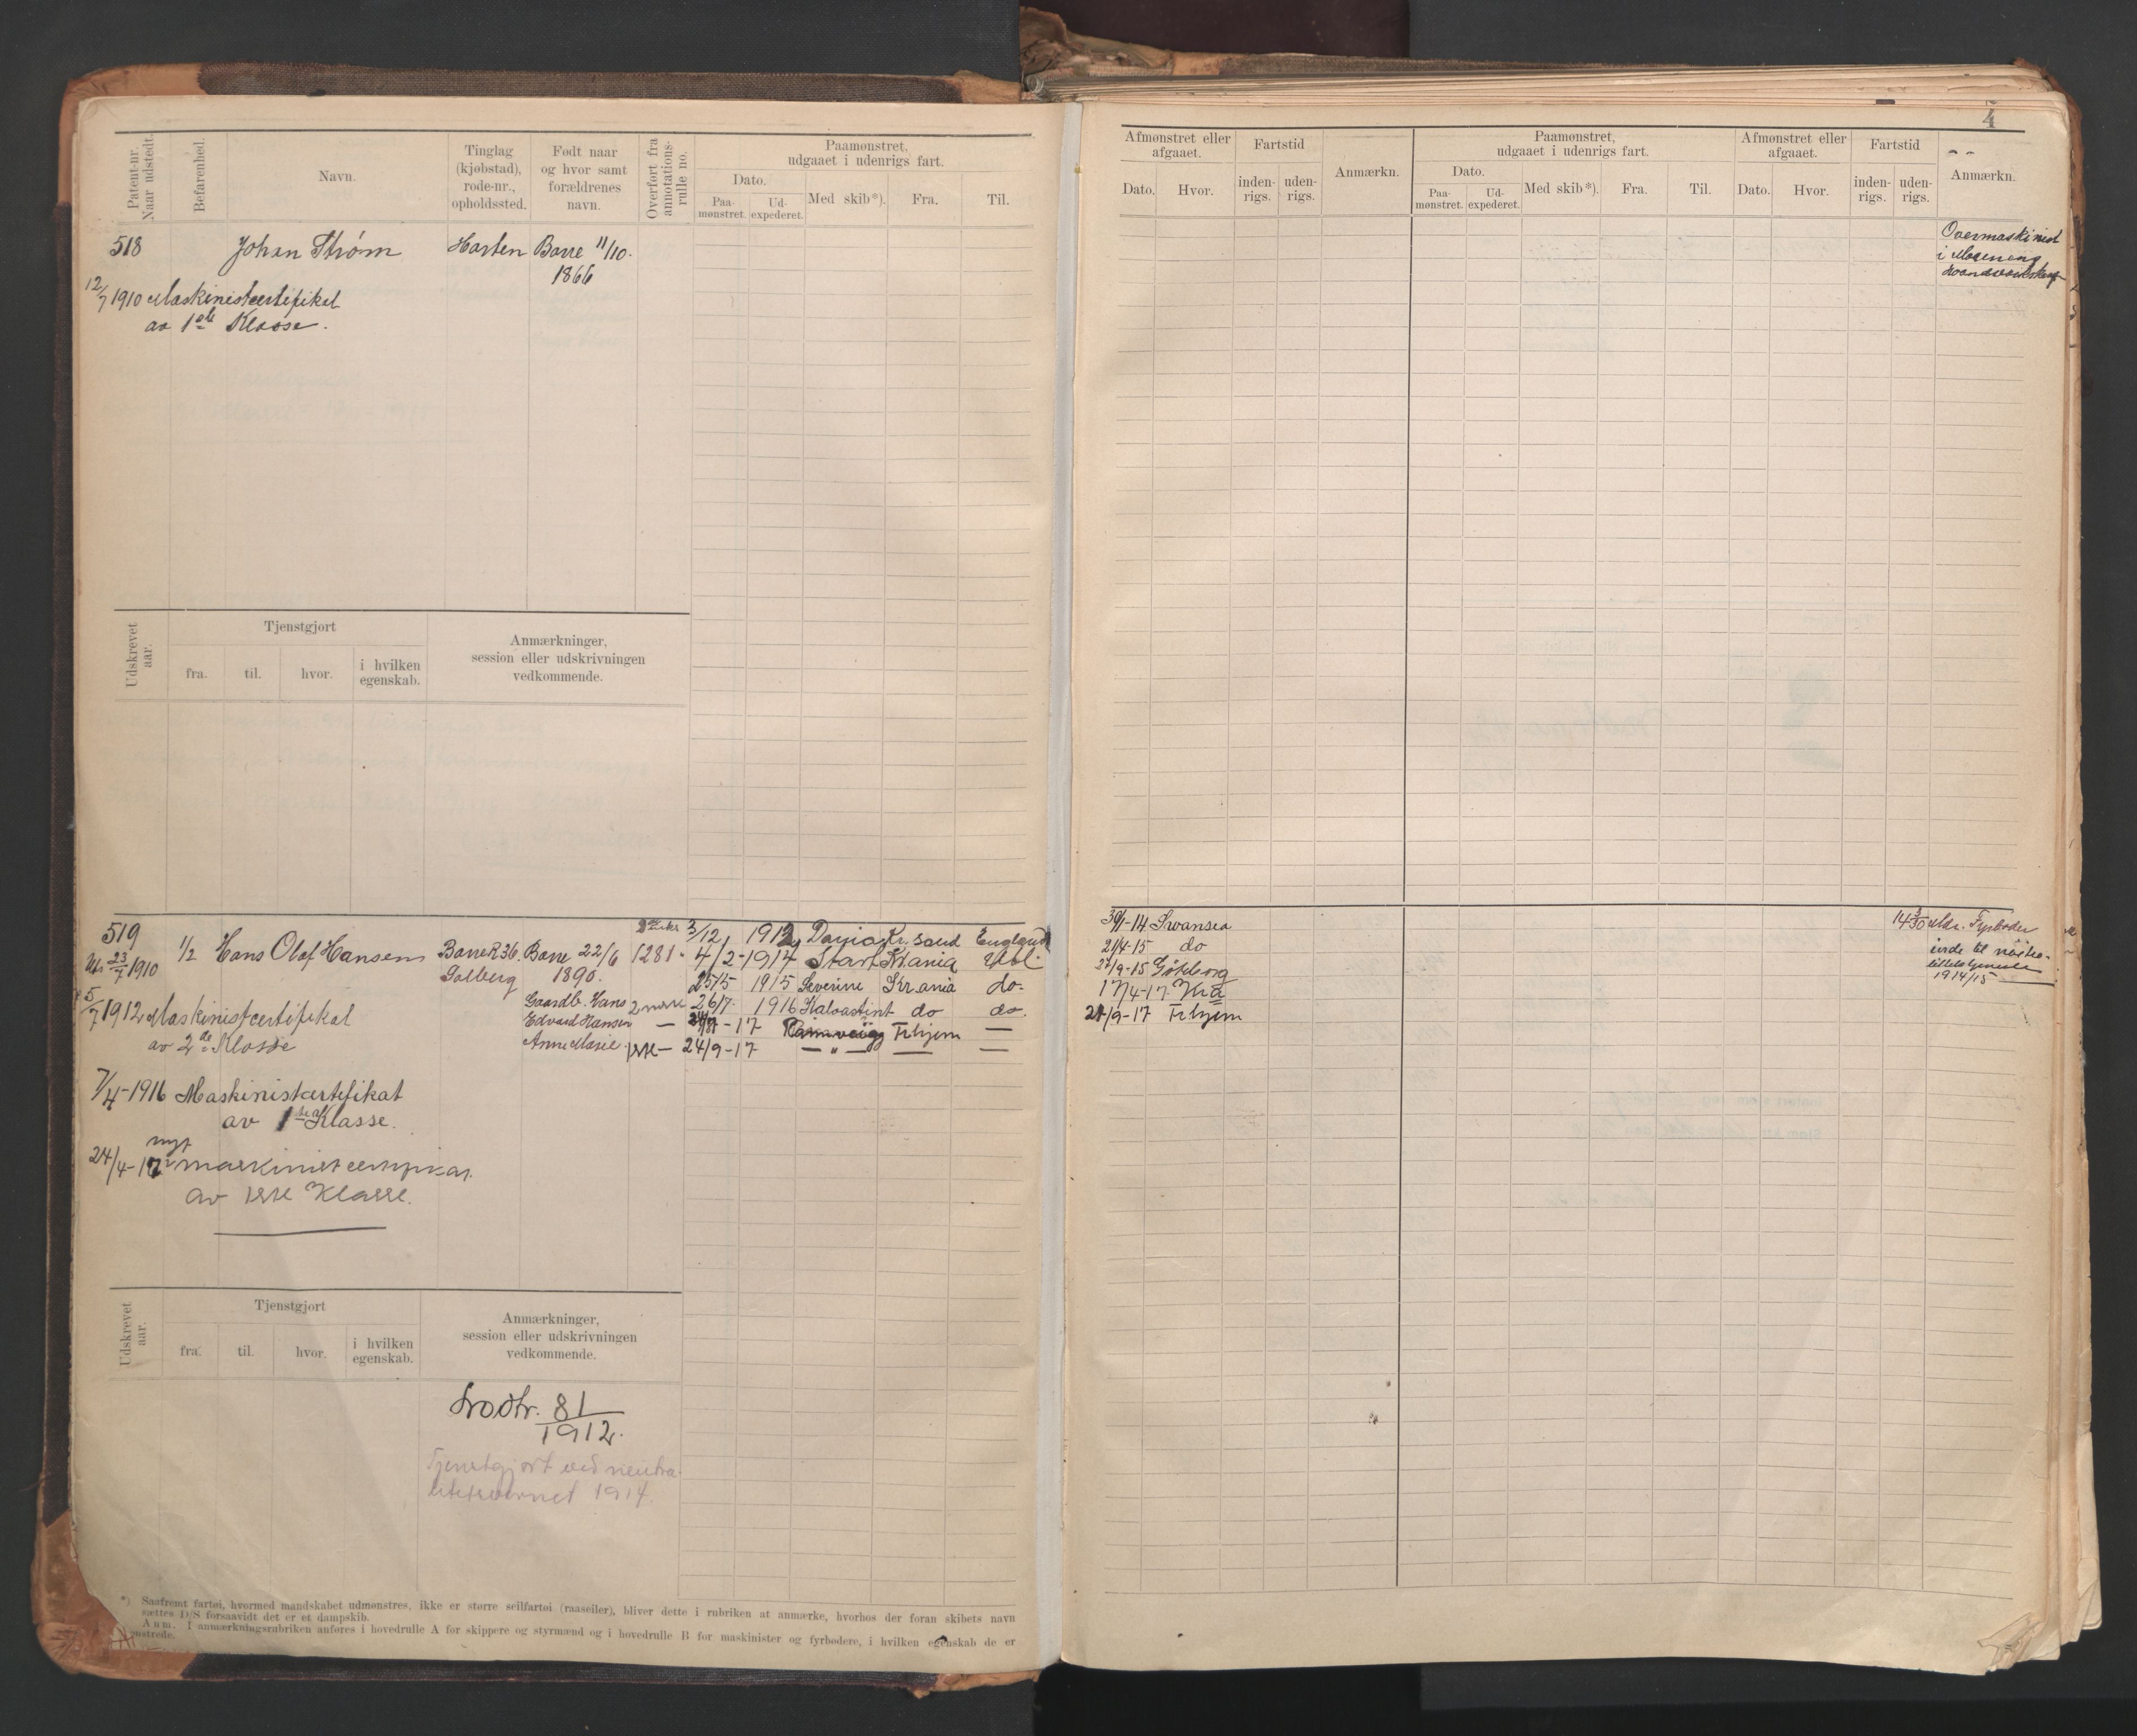 Patent-nr. Naar udstedt.
Befarenhed.
Navn.
Tinglag (kjøbstad), rode-nr., opholdssted.
Født naar og hvor samt forældrenes navn.
Overført fra annotations-rulle no.
Paamønstret, udgaaet i udenrigs fart.
Dato.
Paa-mønstret.
Ud-expederet.
Med skib*).
Fra.
Til.
518 Johan Strøm Horten Borre 11/10.
1866
12/7 1910 Maskinistcertifikat
av 1ste Klasse.
Udskrevet aar.
Tjenstgjort
fra.
til.
hvor.
i hvilken egenskab.
Anmærkninger, session eller udskrivningen vedkommende.
519
23/7 1910 1/2 Hans Olaf Hansen Borre R 36. Borre 22/6 1281
Solberg 1890.
Gaardb. Hans
Edvard Hansen
Anne Marie
3/12 1912 Kr.sand England
4/2-1914 Start Kr.ania
25/5 1915 Severine Kr.ania do.
26/7. 1916 Kalvøtint do do.
-17 Frhjem —
24/9-17 — „ — — —
5/7 1912 Maskinistcertifikat
av 2de Klasse
7/4-1916 Maskinistcertifikat
av 1ste Klasse.
nyt
24/4-17 maskinistcertifikat
av 1ste Klasse.
Udskrevet aar.
Tjenstgjort
fra.
til.
hvor.
i hvilken egenskab.
Anmærkninger, session eller udskrivningen vedkommende.
81
1912.
Tjenstgjort ved neutra-
litetsvernet 1914.
*) Saafremt fartøi, hvormed mandskabet udmønstres, ikke er større seilfartøi (raaseiler), bliver dette i rubriken at anmærke, hvorhos der foran skibets navn
sættes D/S forsaavidt det er et dampskib.
Anm. I anmærkningsrubriken anføres i hovedrulle A for skippere og styrmænd og i hovedrulle B for maskinister og fyrbødere, i hvilken egenskab de er
mønstrede.
4
Afmønstret eller afgaaet.
Dato.
Hvor.
Fartstid
inden-rigs.
uden-rigs.
Anmærkn.
Paamønstret, udgaaet i udenrigs fart.
Dato.
Paa-mønstret.
Ud-expederet.
Med skib*).
Fra.
Til.
Afmønstret eller afgaaet.
Dato.
Hvor.
Fartstid
inden-rigs.
uden-rigs.
Anmærkn.
Overmaskinist
i Marinens
30/1-14 Swansea
21/4-15 do
27/9-15 Göteborg
17/4-17 Kr.a
21/9-17 Frhjem
Fyrbøder
inde til nøitra-
litetstjeneste
1914/15